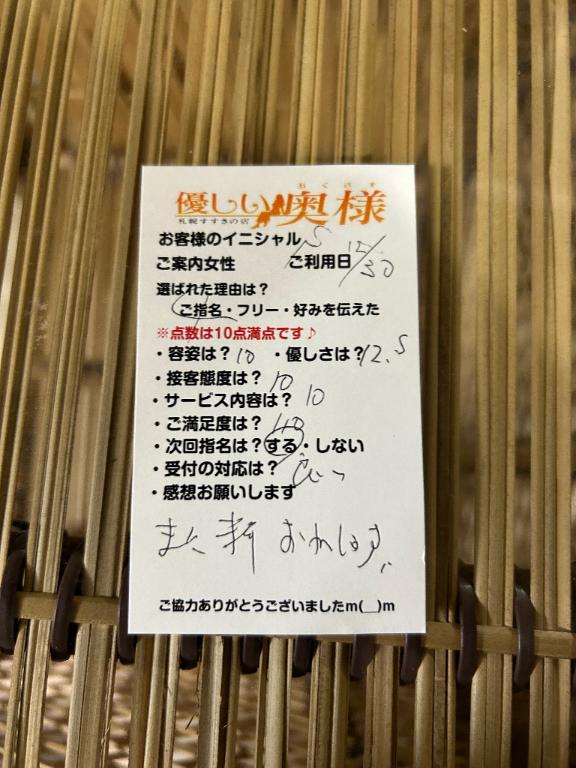 おくさま
優しい奥様
札幌すすきの店
お客様のイニシャル S
ご案内女性 ご利用日 12/30
選ばれた理由は?
ご指名・フリー・好みを伝えた
※点数は10点満点です♪
・容姿は? 10 ・優しさは? 12.5
・接客態度は? 10
・サービス内容は? 10
・ご満足度は?
・次回指名は?する・しない
・受付の対応は? 良い
・感想お願いします
また おねします
ご協力ありがとうございましたm(__)m